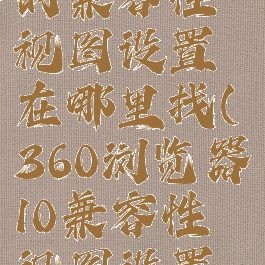 的兼容性
视图设置
在哪里找(
360浏览器
10兼容性
视图设置